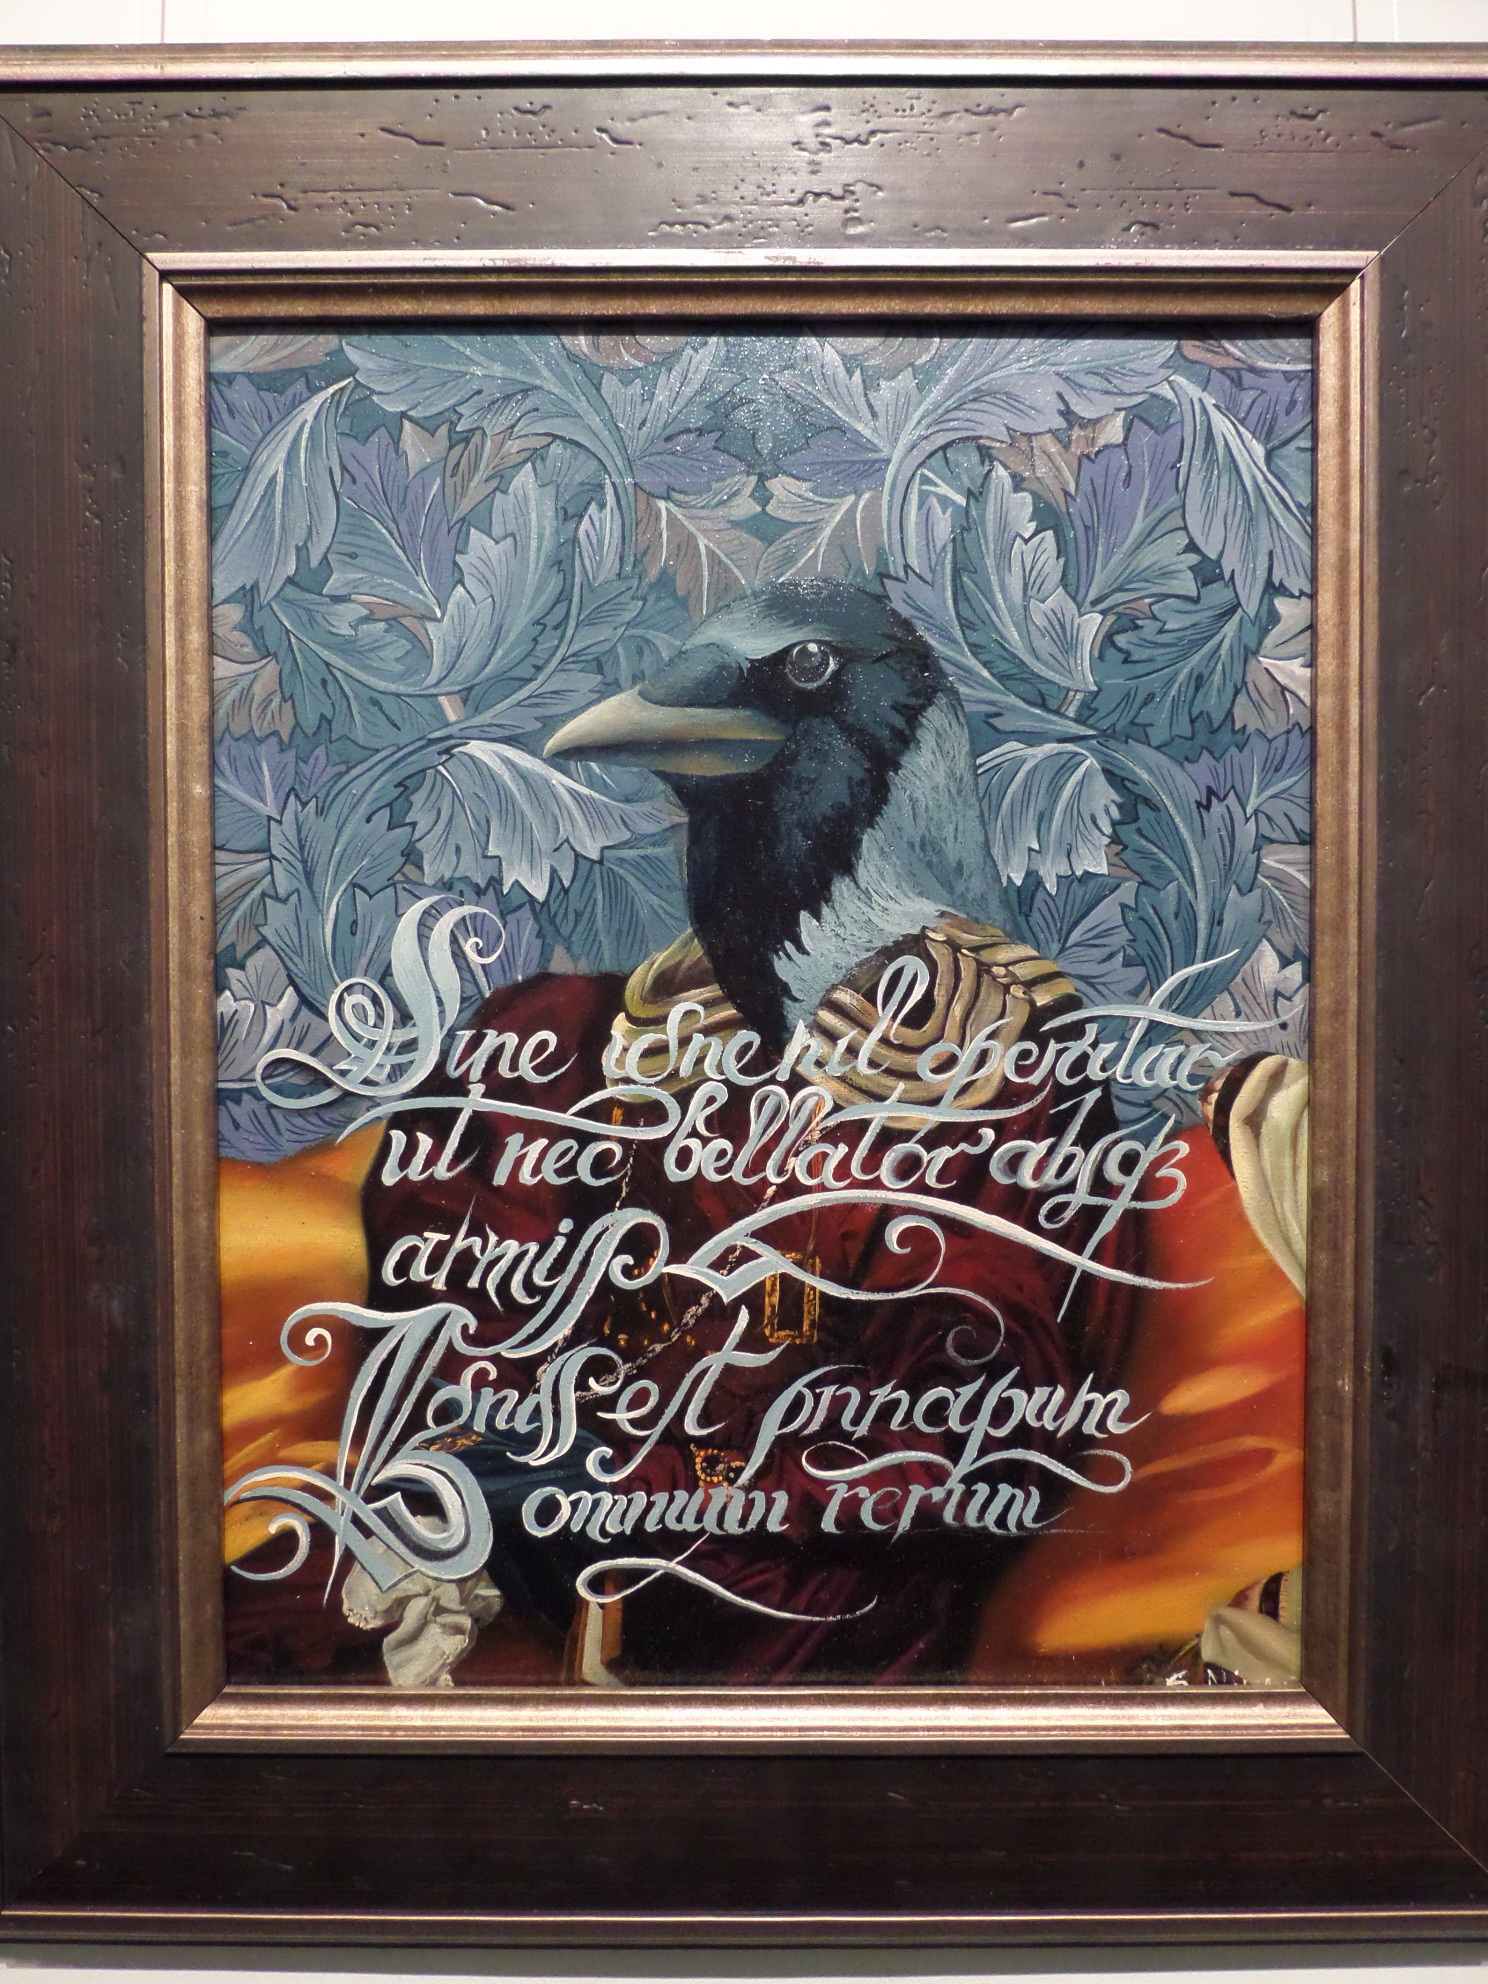 Sine igne nil operatur
ut nec bellator absqꝫ
armis
Ignis est principium
omnium rerum